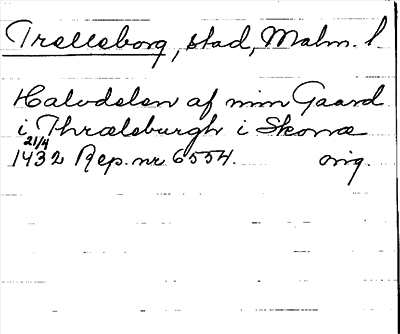 Trelleborg, stad, Malm. l.
Halvdelen af min Gaard
i Thrælsburgh i Skonæ
21/4
1432 Rep. nr 6554. orig.